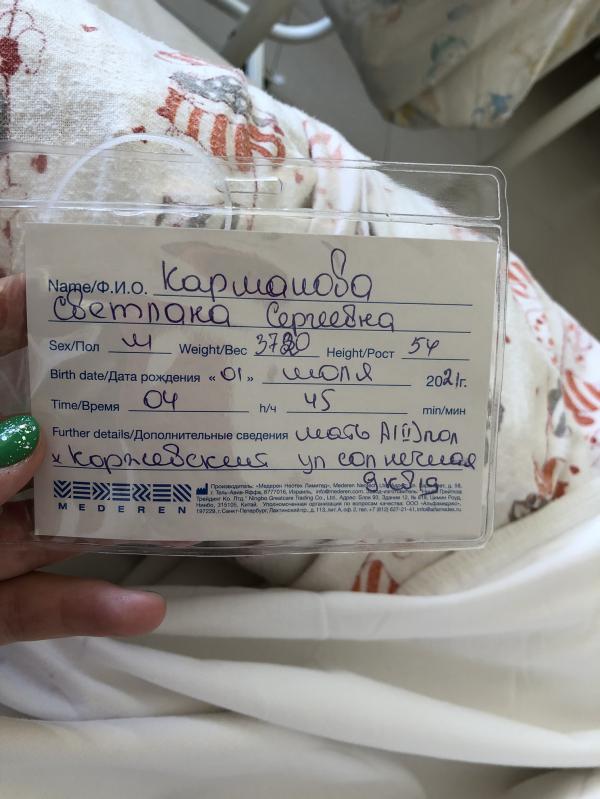 Name/Ф.И.О. Карманова
Светлана Сергеевна
Sex/Пол м Weight/Вес 3780 Height/Рост 54
Birth date/Дата рождения «01» июля 2021г.
Time/Время 04 h/ч 45 min/мин
Further details/Дополнительные сведения мать A(II) пол
х Коржевский ул солнечная
9-819
MEDEREN
Производитель: «Медерен Неотех Лимитед», Mederen Neotech
г. Тель-Авив-Яффа, 6777016, Израиль, info@mederen.com.
Трейдинг Ко, Лтд." Ningbo Greatcare Trading Co., Ltd., Адрес: Блок 93, Здание 12,
Нинбо, 315105, Китай. Уполномоченная организация по вопросам качества: ООО «Альфамедикс»,
197229, г. Санкт-Петербург, Лахтинский пр., д. 113, лит. А, оф. 2, тел. +7 (812) 627-21-41, info@alfamedex.ru